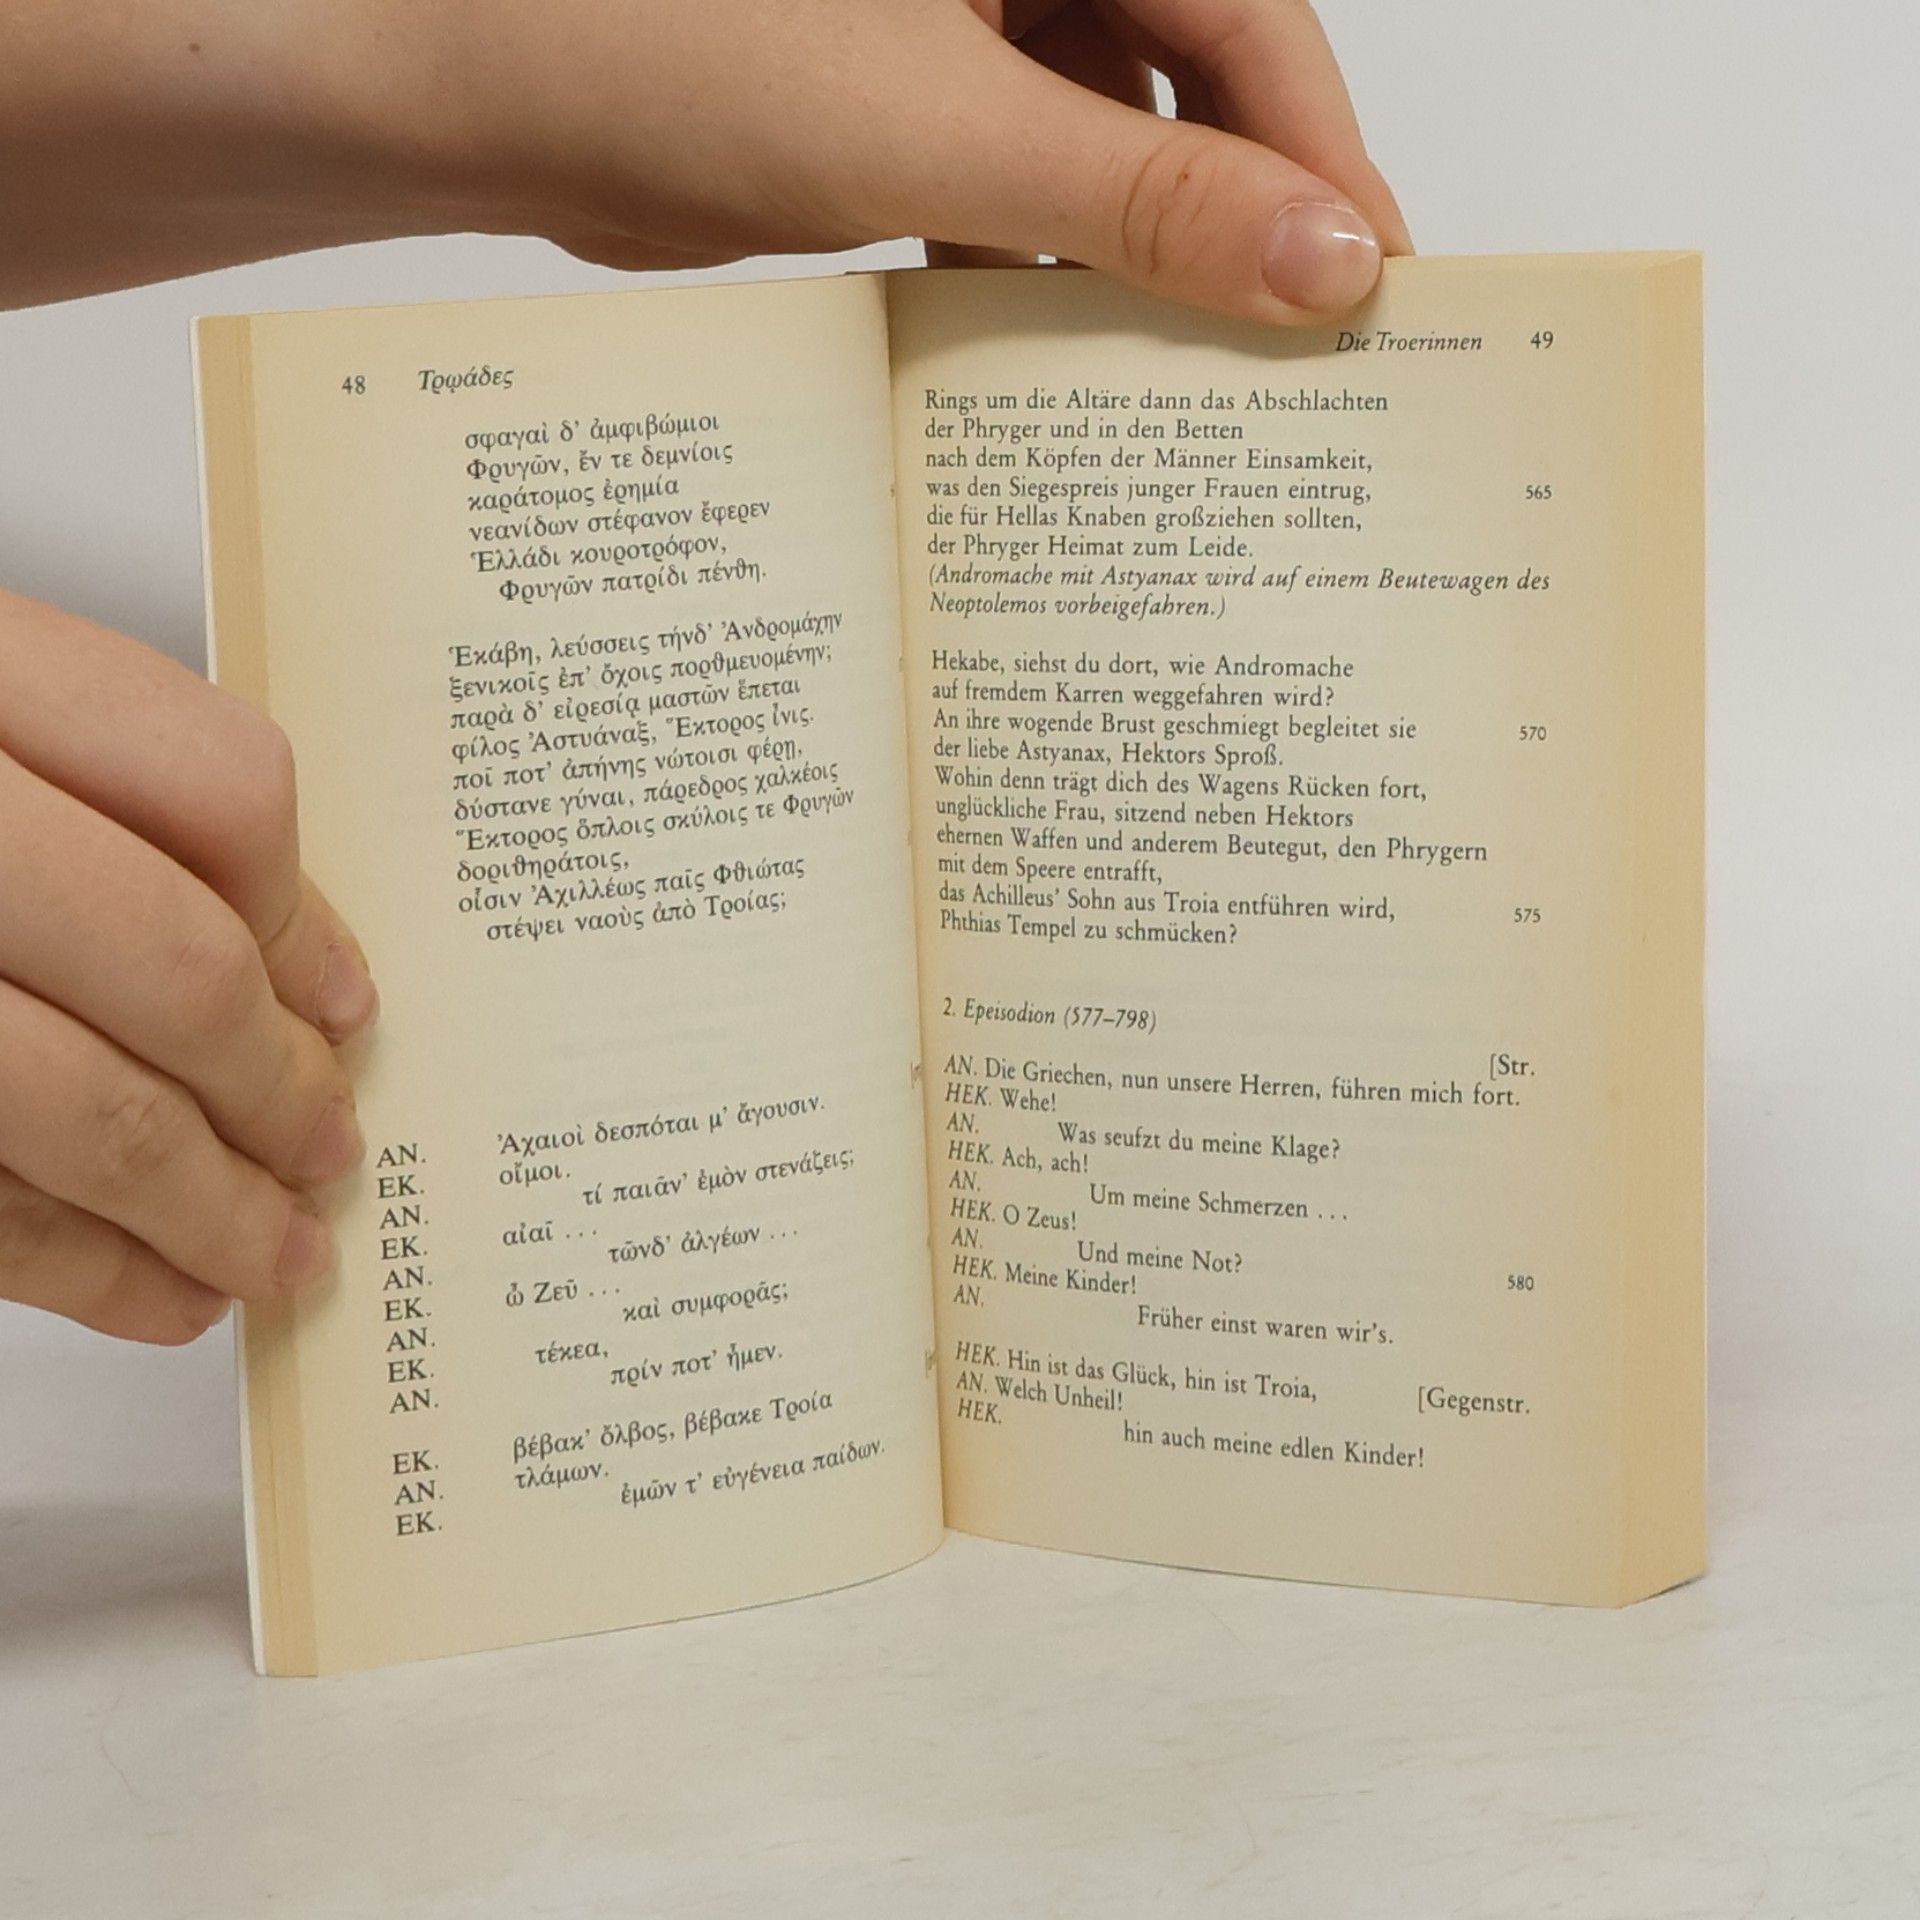 48 Τρῳάδες
σφαγαὶ δ’ ἀμφιβώμιοι
Φρυγῶν, ἔν τε δεμνίοις
καράτομος ἐρημία
νεανίδων στέφανον ἔφερεν
Ἑλλάδι κουροτρόφον,
Φρυγῶν πατρίδι πένθη.
Ἑκάβη, λεύσσεις τήνδ’ Ἀνδρομάχην
ξενικοῖς ἐπ’ ὄχοις πορθμευομένην;
παρὰ δ’ εἰρεσίᾳ μαστῶν ἕπεται
φίλος Ἀστυάναξ, Ἕκτορος ἶνις.
ποῖ ποτ’ ἀπήνης νώτοισι φέρῃ,
δύστανε γύναι, πάρεδρος χαλκέοις
Ἕκτορος ὅπλοις σκύλοις τε Φρυγῶν
δοριθηράτοις,
οἷσιν Ἀχιλλέως παῖς Φθιώτας
στέψει ναοὺς ἀπὸ Τροίας;
ΑΝ. Ἀχαιοὶ δεσπόται μ’ ἄγουσιν.
ΕΚ. οἴμοι.
ΑΝ. τί παιᾶν’ ἐμὸν στενάζεις;
ΕΚ. αἰαῖ . . .
ΑΝ. τῶνδ’ ἀλγέων . . .
ΕΚ. ὦ Ζεῦ . . .
ΑΝ. καὶ συμφορᾶς;
ΕΚ. τέκεα,
ΑΝ. πρίν ποτ’ ἦμεν.
ΕΚ. βέβακ’ ὄλβος, βέβακε Τροία
ΑΝ. τλάμων.
ΕΚ. ἐμῶν τ’ εὐγένεια παίδων.
Die Troerinnen 49
Rings um die Altäre dann das Abschlachten
der Phryger und in den Betten
nach dem Köpfen der Männer Einsamkeit,
was den Siegespreis junger Frauen eintrug, 565
die für Hellas Knaben großziehen sollten,
der Phryger Heimat zum Leide.
(Andromache mit Astyanax wird auf einem Beutewagen des
Neoptolemos vorbeigefahren.)
Hekabe, siehst du dort, wie Andromache
auf fremdem Karren weggefahren wird?
An ihre wogende Brust geschmiegt begleitet sie 570
der liebe Astyanax, Hektors Sproß.
Wohin denn trägt dich des Wagens Rücken fort,
unglückliche Frau, sitzend neben Hektors
ehernen Waffen und anderem Beutegut, den Phrygern
mit dem Speere entrafft,
das Achilleus’ Sohn aus Troia entführen wird, 575
Phthias Tempel zu schmücken?
2. Epeisodion (577–798)
[Str.
AN. Die Griechen, nun unsere Herren, führen mich fort.
HEK. Wehe!
AN. Was seufzt du meine Klage?
HEK. Ach, ach!
AN. Um meine Schmerzen . . .
HEK. O Zeus!
AN. Und meine Not?
HEK. Meine Kinder! 580
AN. Früher einst waren wir’s.
HEK. Hin ist das Glück, hin ist Troia, [Gegenstr.
AN. Welch Unheil!
HEK. hin auch meine edlen Kinder!